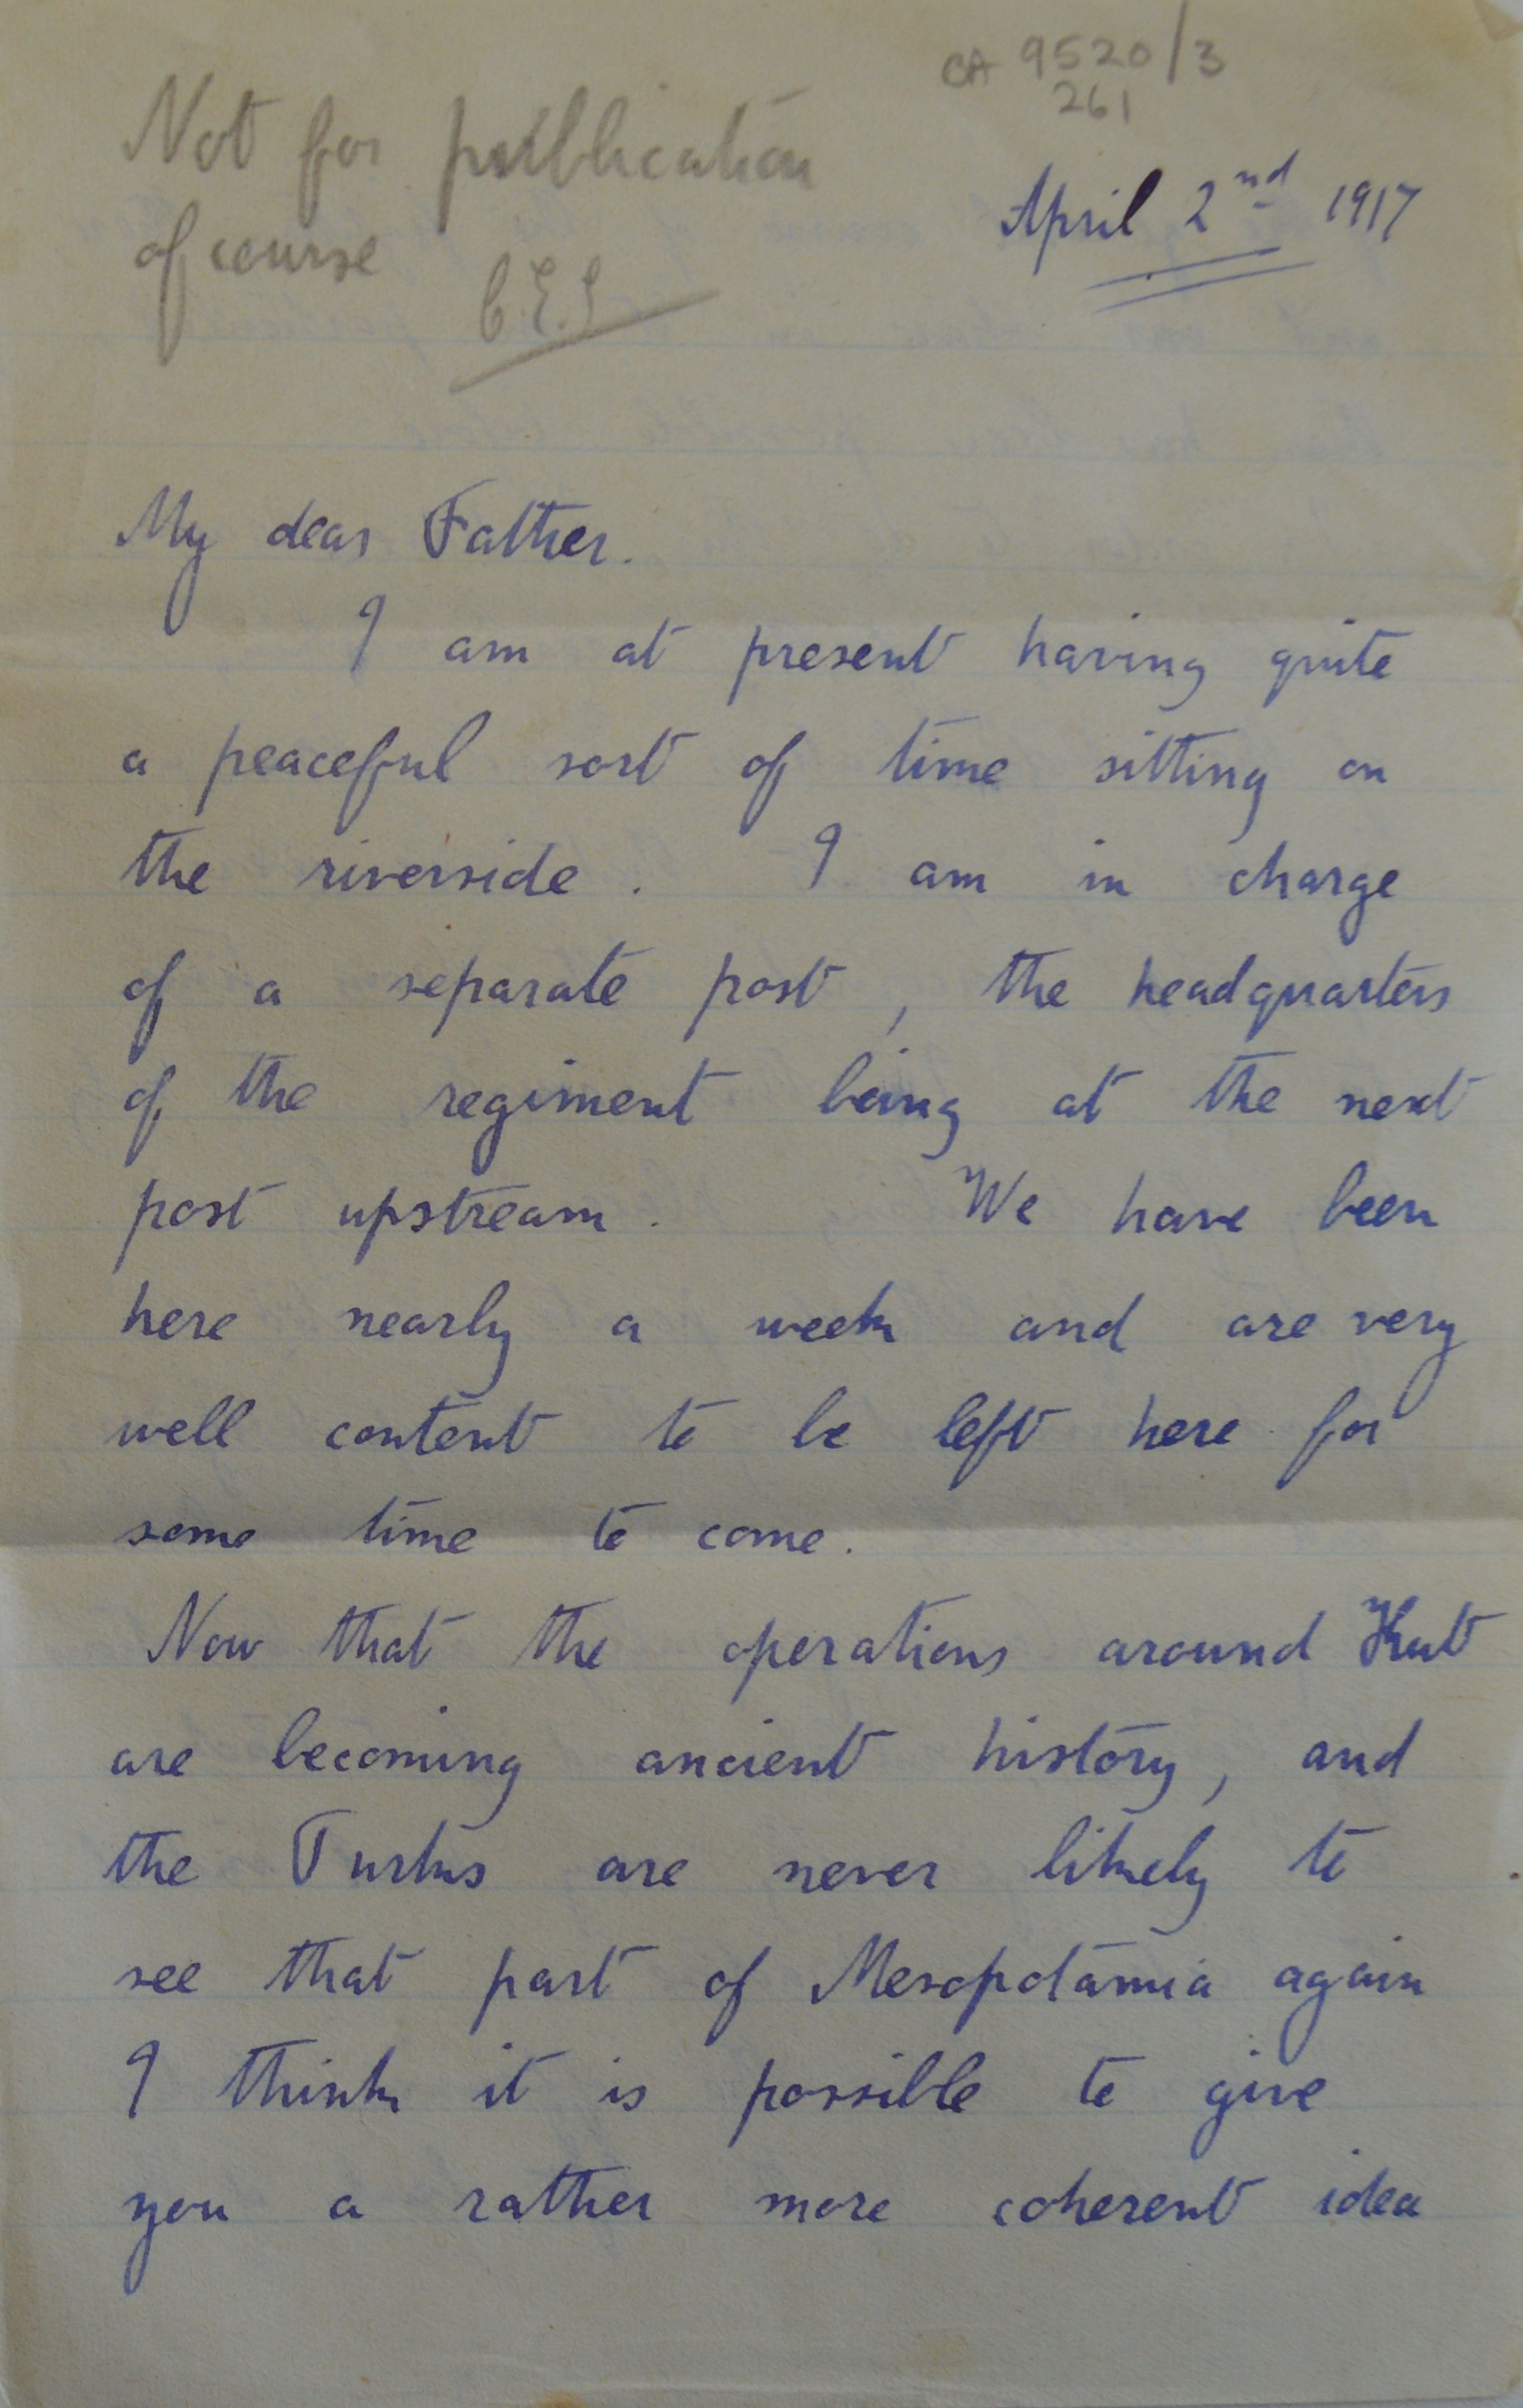 CA 9520/3
261
Not for publication
of course
April 2nd 1917
My dear Father.
I am at present having quite
a peaceful sort of time sitting on
the riverside. I am in charge
of a separate post, the headquarters
of the regiment being at the next
post upstream. We have been
here nearly a week and are very
well content to be left here for
some time to come.
Now that the operations around Kut
are becoming ancient history, and
the Turks are never likely to
see that part of Mesopotamia again
I think it is possible to give
you a rather more coherent idea